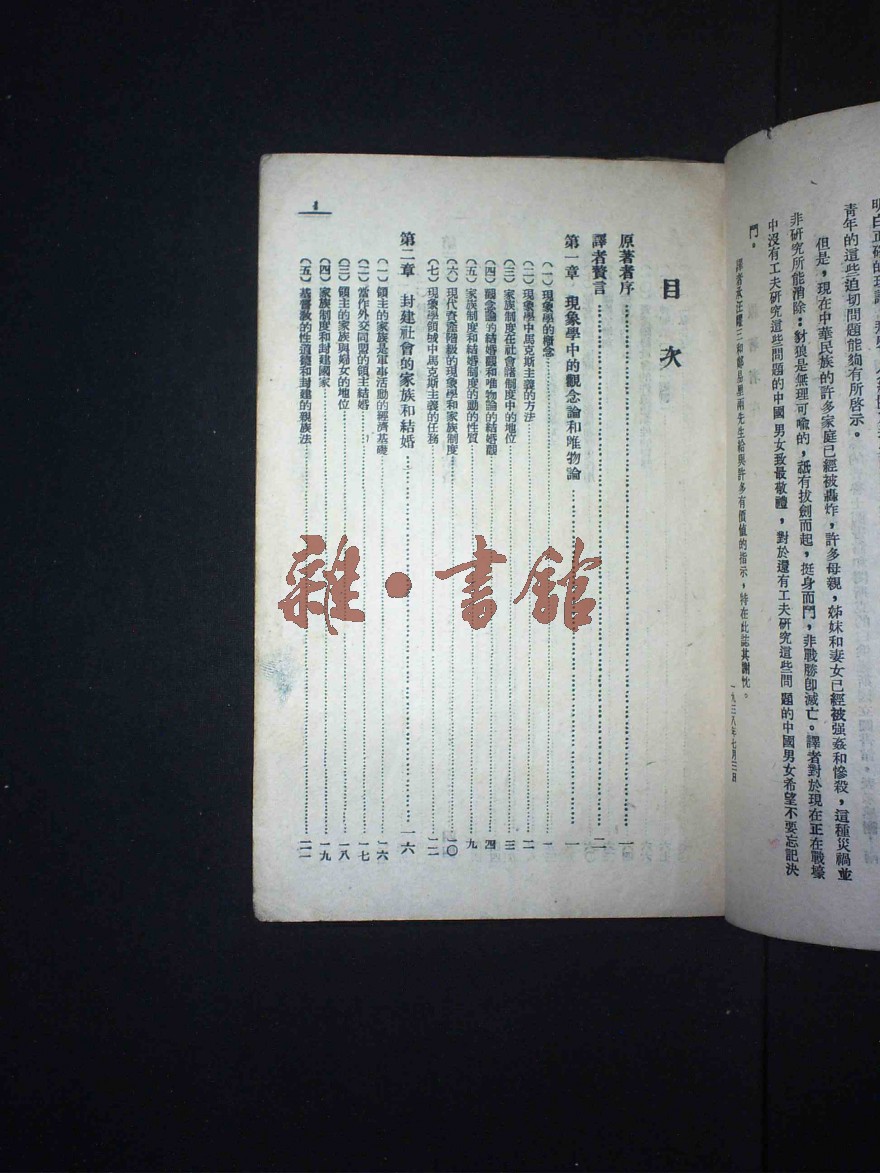 青年的這些迫切問題能夠有所啓示。
但是，現在中華民族的許多家庭已經被轟炸，許多母親，姊妹和妻女已經被强姦和慘殺，這種災禍並
非研究所能消除：豺狼是無理可喩的，祗有拔劍而起，挺身而鬥，非戰勝卽滅亡。譯者對於現在正在戰壕
中沒有工夫研究這些問題的中國男女致最敬禮，對於還有工夫研究這些問題的中國男女希望不要忘記決
鬥。
譯者承汪耀三和
先生給與許多有價値的指示，特在此誌其謝忱。
一九三八年七月三日
目次
原著者序……一
譯者贅言……二
第一章 現象學中的觀念論和唯物論……一
（一）現象學的概念……一
（二）現象學中馬克斯主義的方法……二
（三）家族制度在社會諸制度中的地位……三
（四）觀念論的結婚觀和唯物論的結婚觀……四
（五）家族制度和結婚制度的動的性質……九
（六）現代資產階級的現象學和家族制度……一〇
（七）現象學領域中馬克斯主義的任務……一二
第二章 封建社會的家族和結婚……一六
（一）領主的家族是軍事活動的經濟基礎……一六
（二）當作外交同盟的領主結婚……一七
（三）領主的家族與婦女的地位……一八
（四）家族制度和封建國家……一九
（五）基督敎的性道德和封建的親族法……二一
1
雜·書館